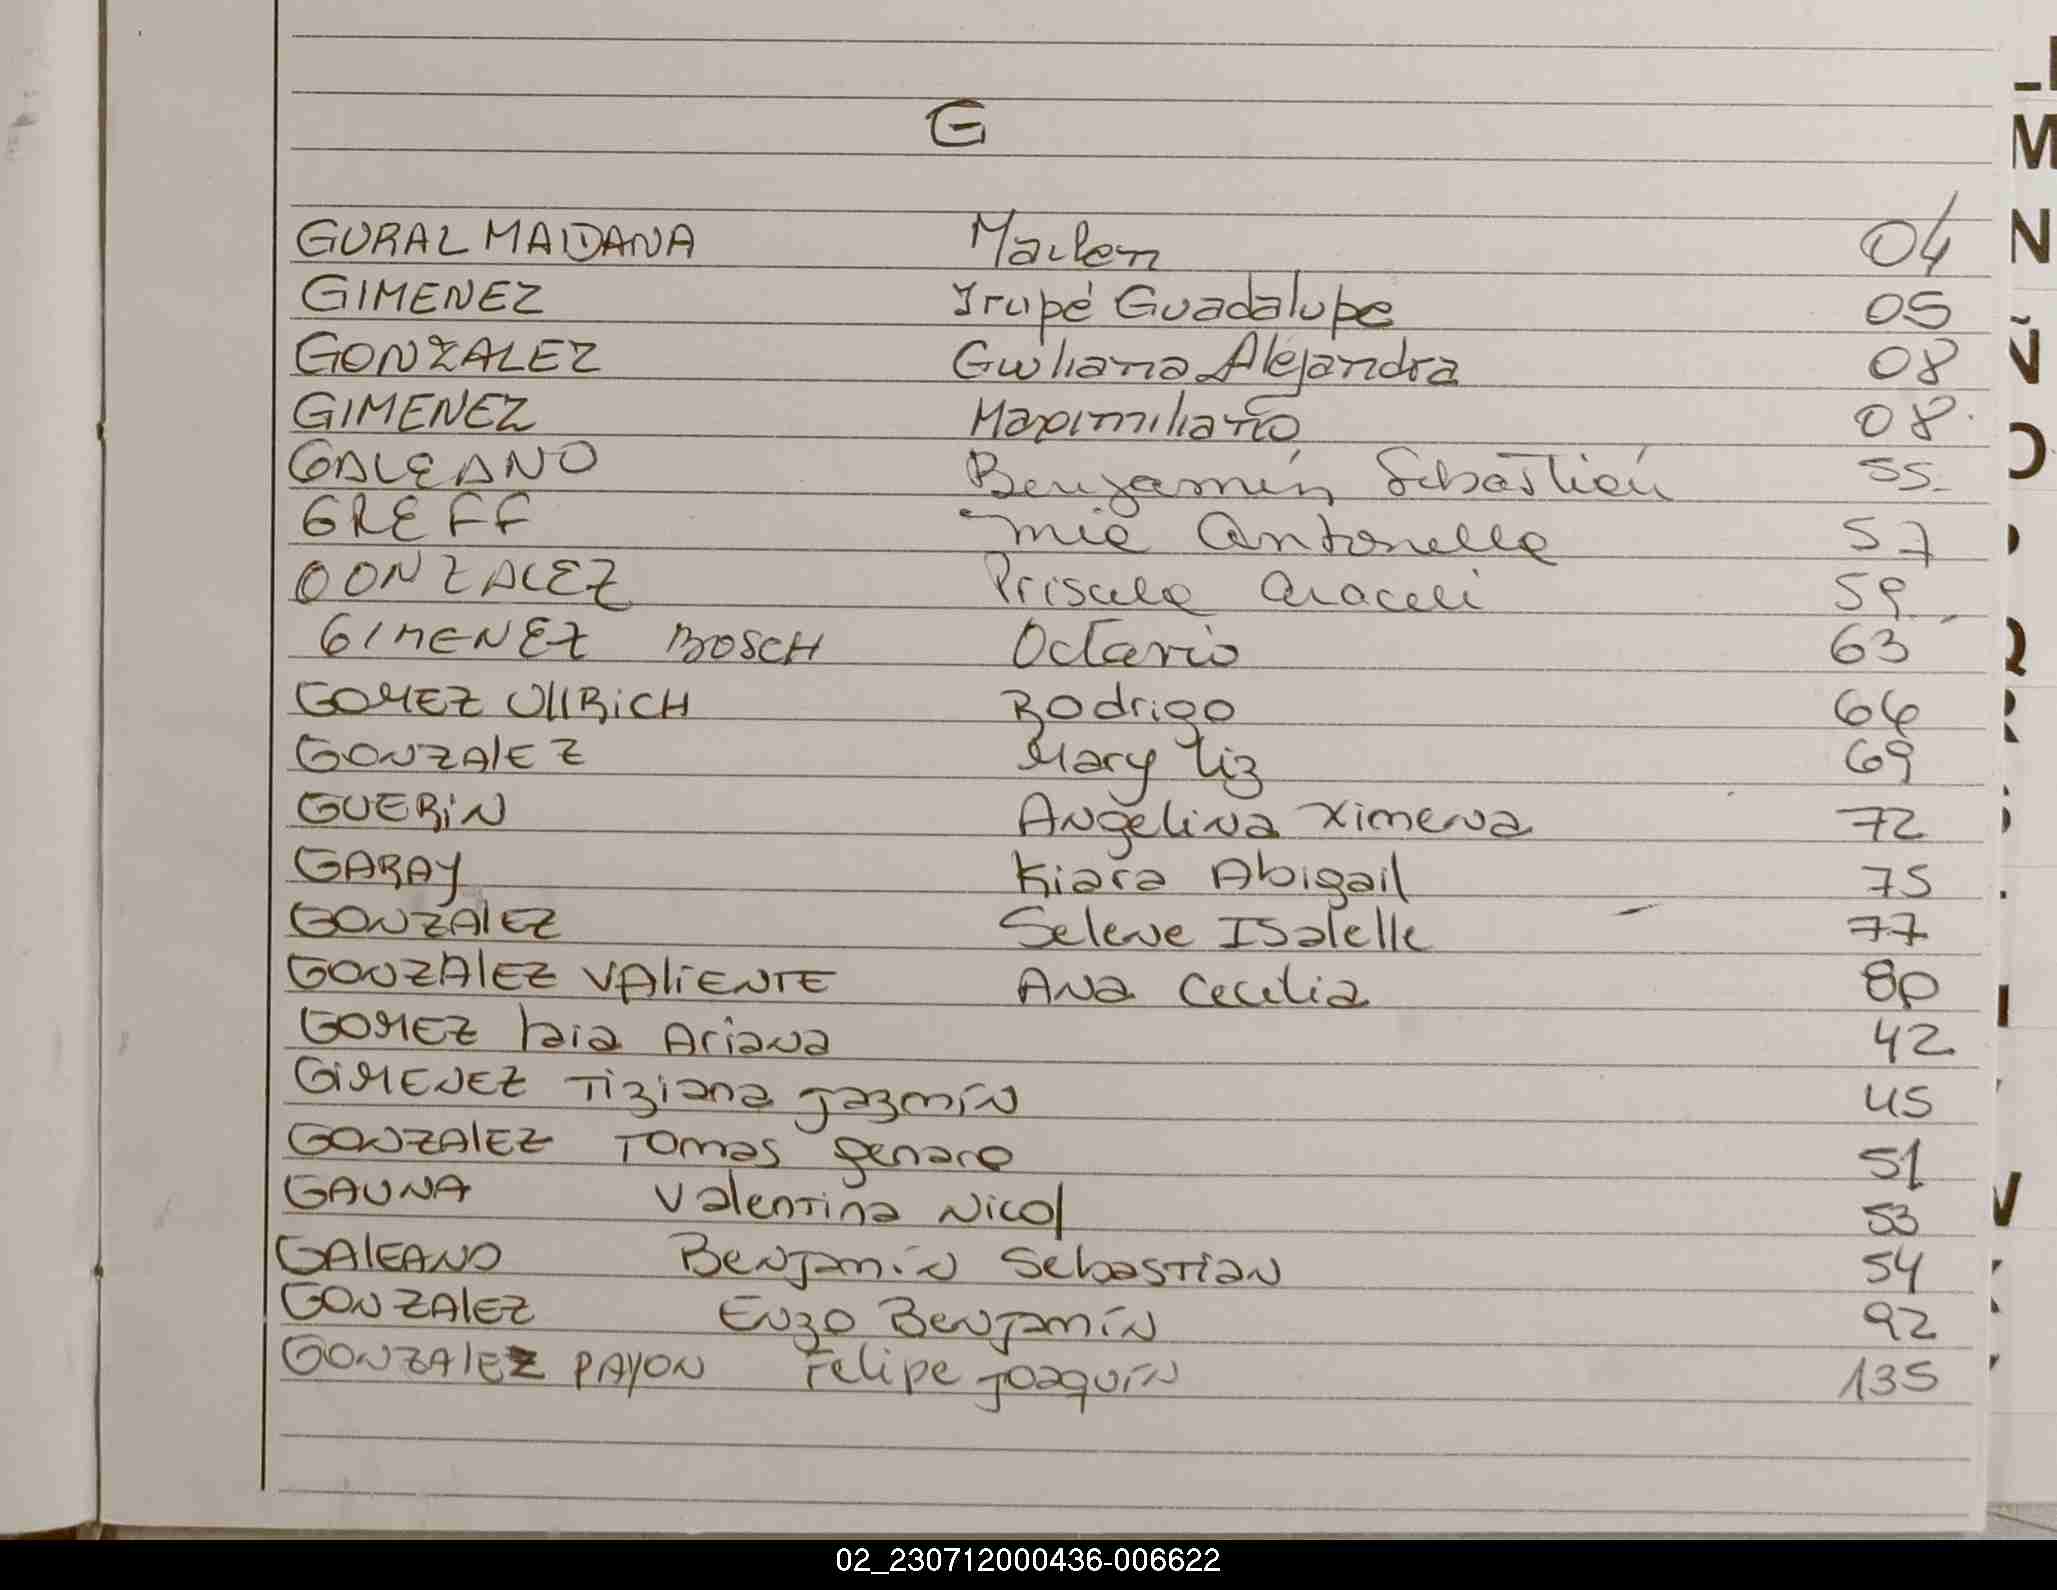 G
GURAL MAIDANA Marlen 04
GIMENEZ Irupé Guadalupe 05
GONZALEZ Giuliana Alejandra 08
GIMENEZ Maximiliano 08
GALEANO Benjamín Sebastián 55
GREFF Mia Antonella 57
GONZALEZ Priscila Araceli 59
GIMENEZ BOSCH Octavio 63
GOMEZ UllRiCH Rodrigo 66
GONZAlEZ Mary Liz 69
GUERiN Angelina Ximena 72
GARAY Kiara Abigail 75
GONZAlEZ Selene ISabelle 77
GONZAlEZ VAliENTE Ana Cecilia 80
GOMEZ Ariana 42
GiMENEZ Tiziana Jazmín 45
GONZAlEZ Tomas Genaro 51
GAUNA Valentina Nicol 53
GAlEANO Benjamín Sebastian 54
GONZAlEZ Enzo Benjamín 92
GONZAlEZ PAYON Felipe Joaquín 135
L
M
N
Ñ
O
P
Q
R
S
02_230712000436-006622